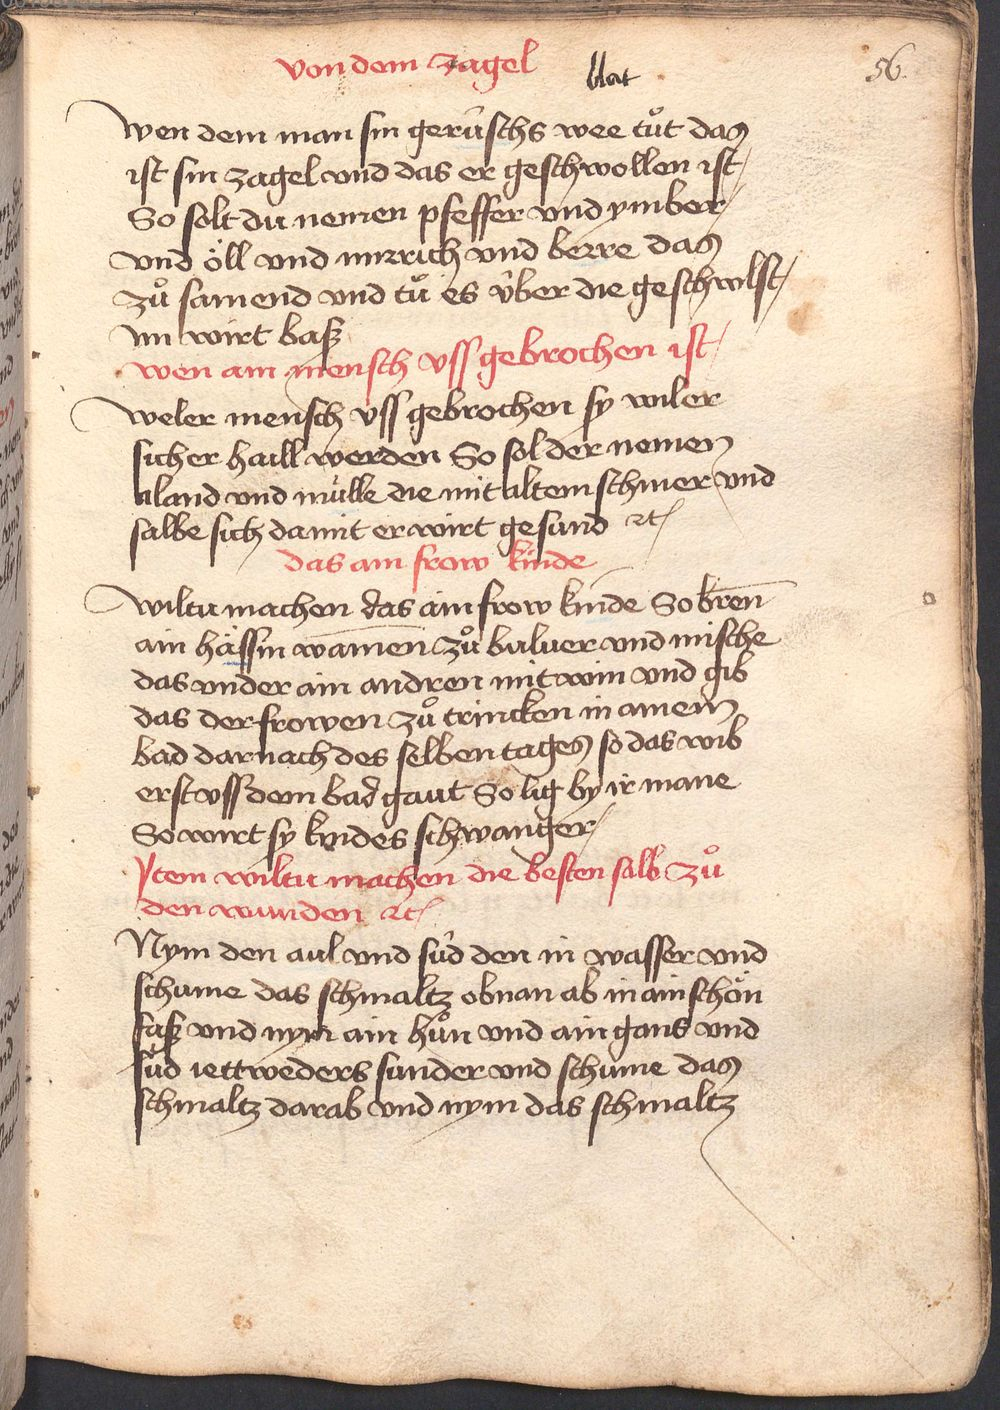 von dem zagel blat 56
Wen dem man sin gerüschs wee tůt das
ist sin zagel vnd das er geschwollen ist
So solt du nemen pfeffer vnd ymber
vnd öll vnd mirrich vnd berre das
zů samend vnd tů es v̂ber die geschwilst
im wirt baß
wen ain mensch vss gebrochen ist
Weler mensch vss gebrochen sy wil er
sicher haill werden So sol der nemen
aland vnd mülle die mit altem schmer vnd
salbe sich damit er wirt gesund ꝛc
das ain frow kinde
Wiltu machen das ain frow kinde So bren̄
ain hässin wamen zů buluer vnd mische
das vnder ain andren mit win vnd gib
das der frowen zů trincken in ainem
bad darnach des selben tages so das wib
erst vss dem bad gaut So lig by ir mane
So wirt sy kindes schwanger
Item wiltu machen die besten salb zů
den wunden ꝛc
Nym den aul vnd sûd den in wasser vnd
schume das schmaltz obnan ab in ain schön
faß vnd nym ain hůn vnd ain gans vnd
sûd iettweders sunder vnd schume das
schmaltz darab vnd nym das schmaltz